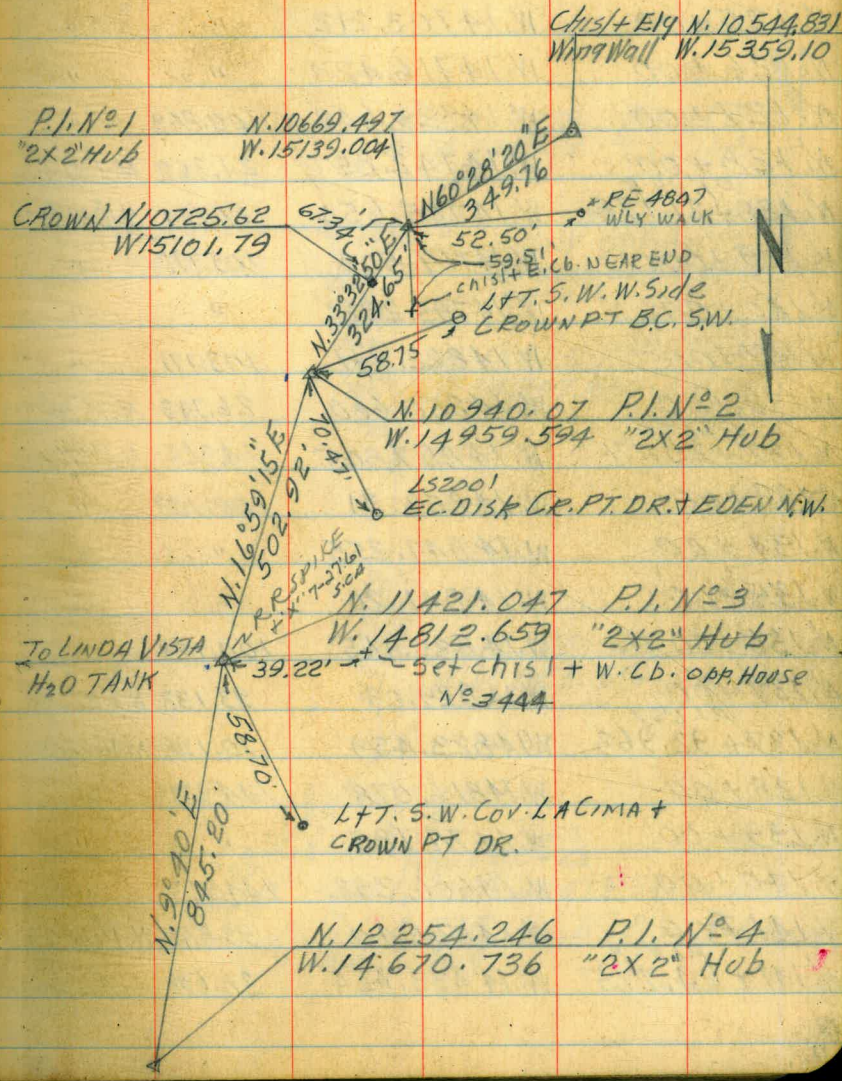 Chisl + Ely N. 10544.831
Wing Wall W. 15359.10
P.I. Nº 1 N. 10669.497
"2X2" Hub W. 15139.004
N60°28'20"E
349.76
RE 4847
WLY WALK
CROWN N10725.62
W15101.79
67.34'
52.50'
59.51'
chisl + E. Cb. NEAR END
N
N. 33°32'50"E
324.65'
L+T. S. W. W. Side
CROWN PT B.C. S.W.
58.75
N. 10940.07 P.I. Nº 2
W. 14959.594 "2X2" Hub
70.47'
LS2001
E.C. DISK CR. PT. DR. + EDEN N.W.
N. 16°59'15"E
502.92'
R.R. SPIKE
+ "X" 7-27-61
N. 11421.047 P.I. Nº 3
W. 14812.659 "2X2" Hub
TO LINDA VISTA
H2O TANK
39.22'
Set chisl + W. Cb. OPP. House
Nº 3444
58.70'
L+T. S. W. Cov. LA CIMA +
CROWN PT DR.
N. 9°40' E
845.20'
N. 12254.246 P.I. Nº 4
W. 14670.736 "2X2" Hub